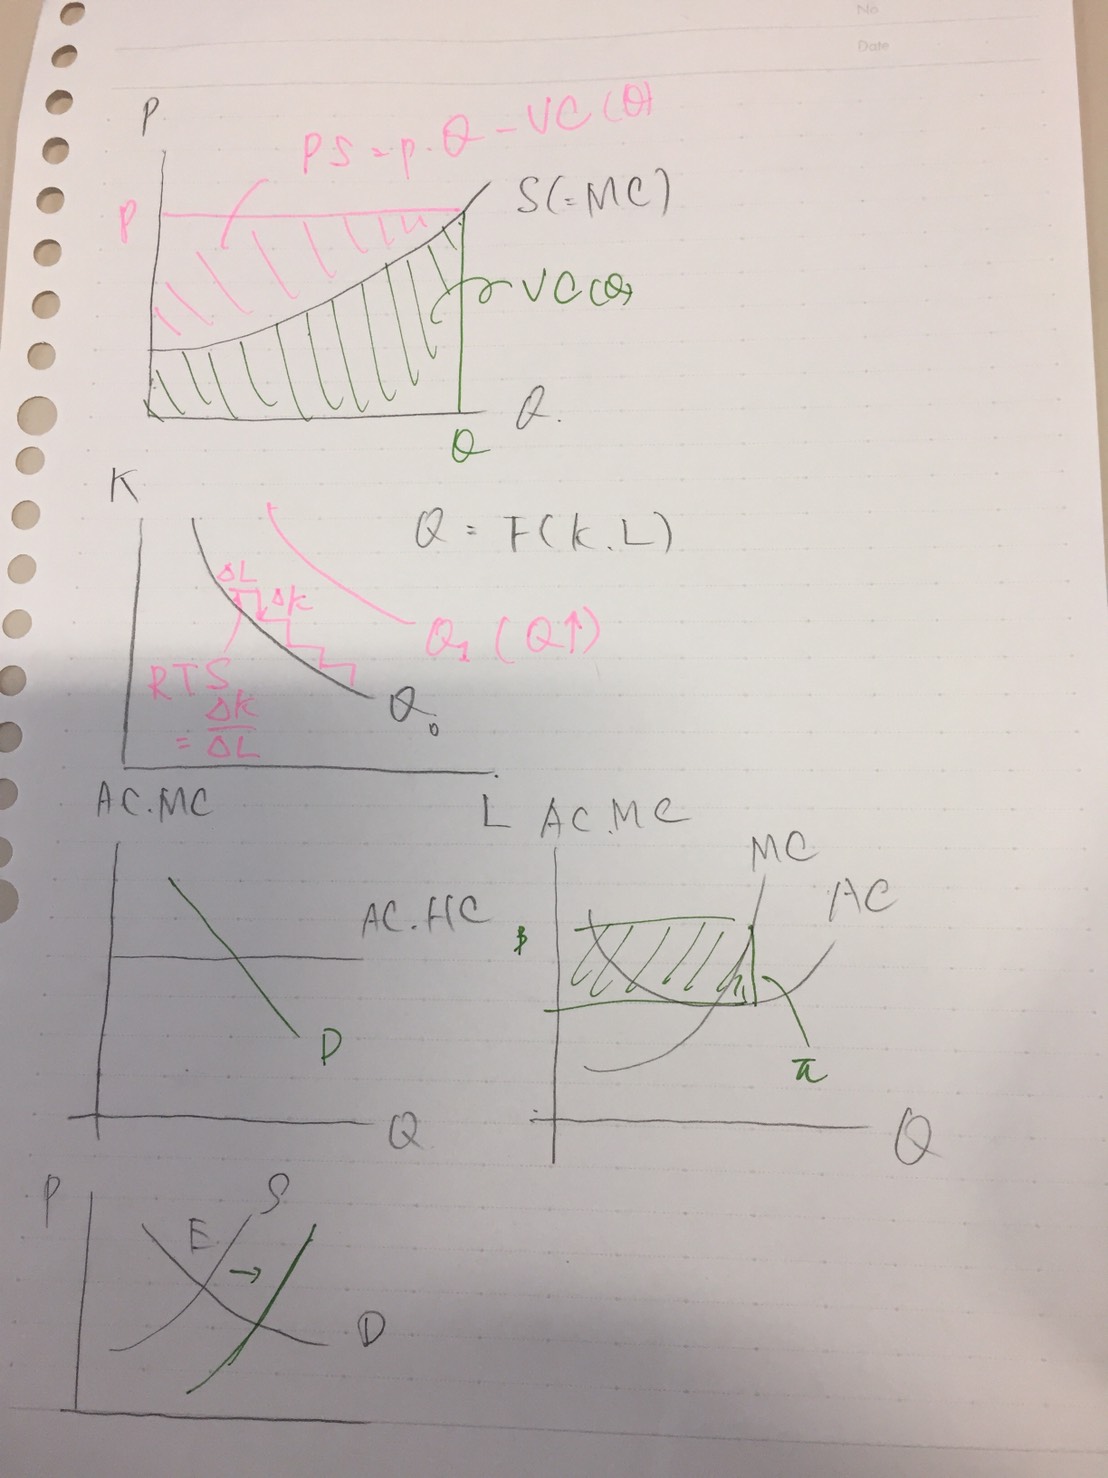 No
Date
P
PS = p.Q - VC(Q)
S(=MC)
P
VC(Q)
Q.
Q
K
Q = F(K.L)
ΔL
ΔK
Q1 (Q↑)
RTS
= ΔK/ΔL
Q0
L
AC.MC
AC.MC
D
Q
AC.MC
MC
AC
$
π
Q
P
S
E
→
D